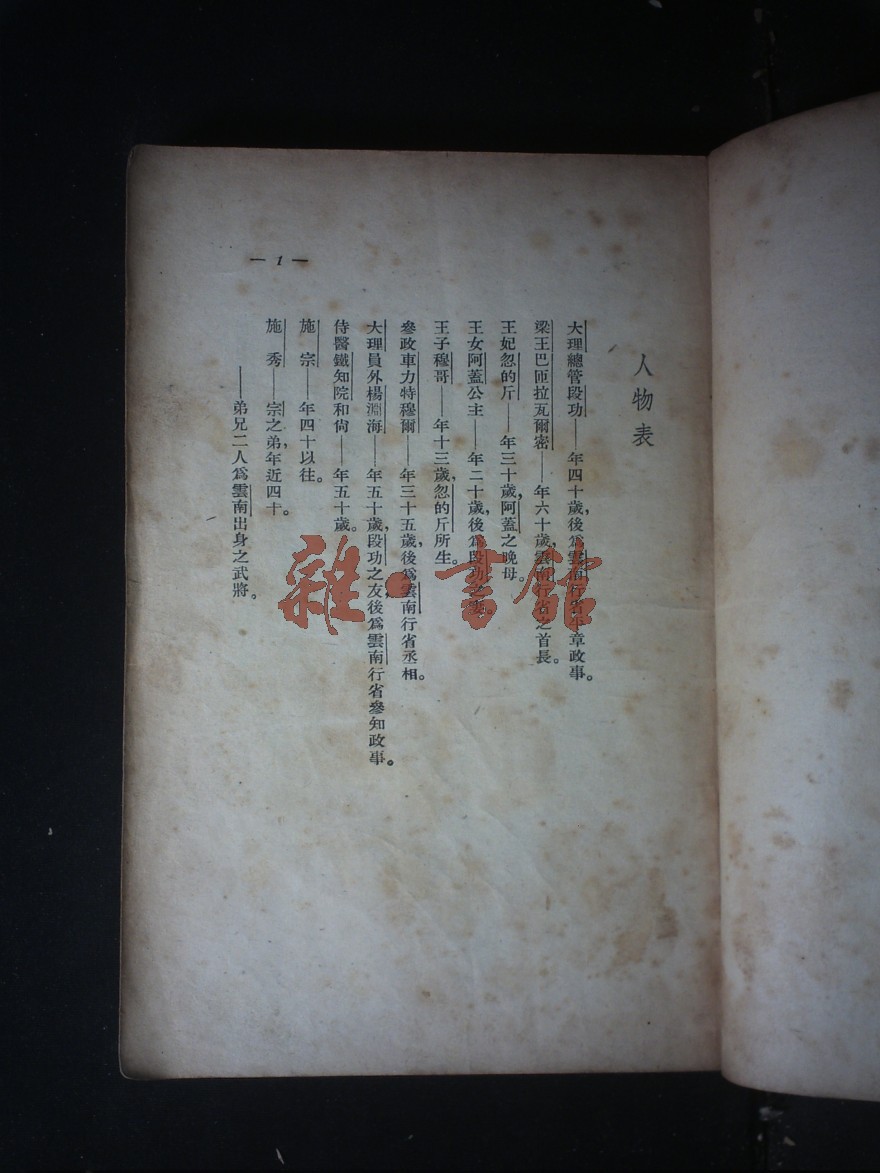 人物表
大理總管段功——年四十歲,後爲雲南行省平章政事。
梁王巴匝拉瓦爾密——年六十歲,雲南行省之首長。
王妃忽的斤——年三十歲,阿蓋之晚母。
王女阿蓋公主——年二十歲,後爲段功之妻。
王子穆哥——年十三歲,忽的斤所生。
參政車力特穆爾——年三十五歲,後爲雲南行省丞相。
大理員外楊淵海——年五十歲,段功之友,後爲雲南行省參知政事。
侍醫鐵知院和尙——年五十歲。
施 宗——年四十以往。
施 秀——宗之弟,年近四十。
——弟兄二人爲雲南出身之武將。
— 1 —
雜·書館